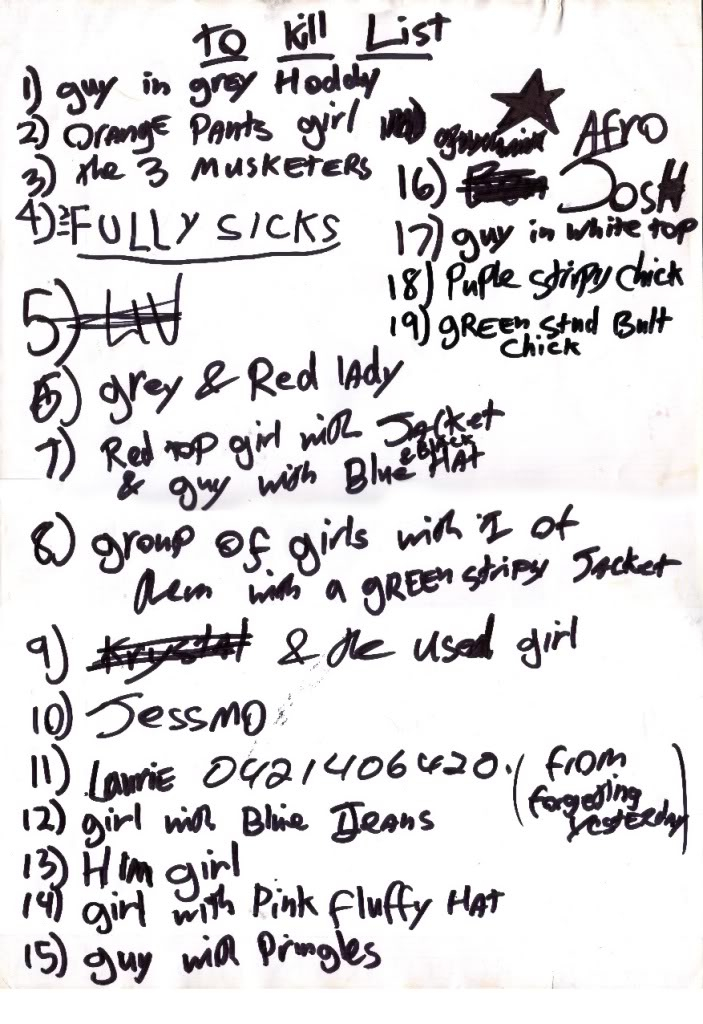 To Kill List
1) guy in grey Hoddy
2) Orange Pants girl
3) the 3 MUSKETERS
4) FULLY SICKS
5) LIV
6) grey & Red lady
7) Red top girl with Jacket
& guy with Blue & Black Hat
8) group of girls with 1 of
them with a GREEN stripy Jacket
9) Krystal & the used girl
10) Jessmo
11) Laurie 0421406420. (from
forgetting
yesterday)
12) girl with Blue Jeans
13) HIM girl
14) girl with Pink fluffy HAT
15) guy with Pringles
Afro
16) JosH
17) guy in white top
18) Puple stripy chick
19) gREEn stud Bult
chick